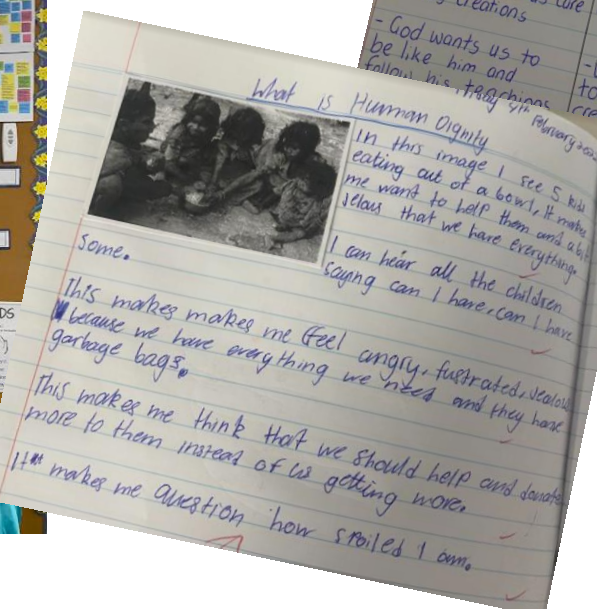 creations
- God wants us to
be like him and
follow his teachings
What is Human Dignity
February
In this image I see 5 kids
eating out of a bowl, It makes
me want to help them and a bit
jelous that we have everything.
I can hear all the children
sayng can I have, can I have
some.
This makes makes me feel angry, fustrated, jealous
because we have everything we need and they have
garbage bags.
This makes me think that we should help and donate
more to them instead of us getting more.
It makes me question how spoiled I am.